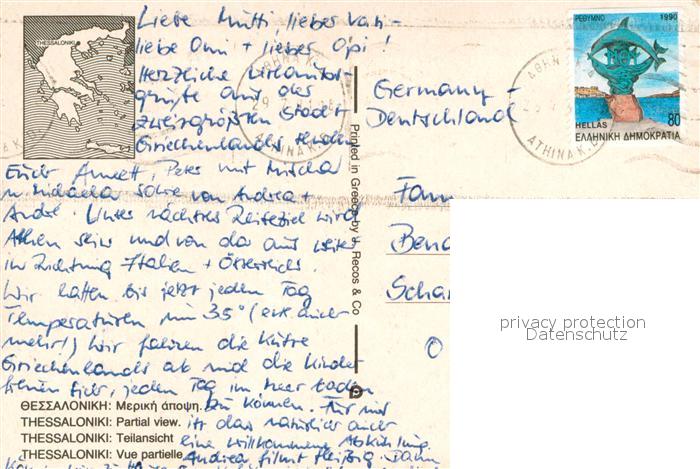 Liebe Mutti, lieber Vati –
liebe Omi + lieber Opi!
Herzliche Urlaubs-
grüße aus der
zweitgrößten Stadt
Griechenlands senden
Euch Annett, Peter mit
u. Michaela sowie von Andrea +
André. Unser nächstes Reiseziel wird
Athen sein und von da aus weiter
in Richtung Italien + Österreich.
Wir hatten bis jetzt jeden Tag
Temperaturen um 35° ( auch
mehr!) Wir fahren die Küste
Griechenlands ab und die Kinder
freuen sich, jeden Tag im Meer baden
zu können. Für mich
ist das natürlich auch
eine willkommene Abkühlung.
Andrea filmt fleißig. Dann
THESSALONIKI
ΘΕΣΣΑΛΟΝΙΚΗ: Μερική άποψη.
THESSALONIKI: Partial view.
THESSALONIKI: Teilansicht
THESSALONIKI: Vue partielle
Printed in Greece by J. Recos & Co
Germany –
Deutschland
ΡΕΘΥΜΝΟ 1990
HELLAS 80
ΕΛΛΗΝΙΚΗ ΔΗΜΟΚΡΑΤΙΑ
ATHINA K.
Fam
privacy protection
Datenschutz